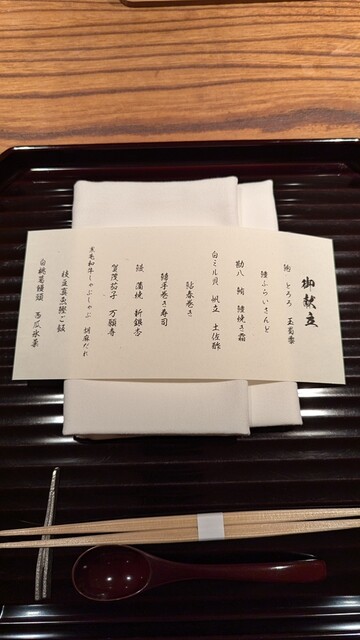 御献立
とろろ 玉蜀黍
鱧ふらいさんど
勘八 鮪 鱧焼き霜
白ミル貝 帆立 土佐酢
鮎春巻き
手巻き寿司
新銀杏
賀茂茄子 万願寺
黒毛和牛しゃぶしゃぶ 胡麻だれ
枝豆真魚鰹ご飯
白桃葛饅頭 西瓜氷菓